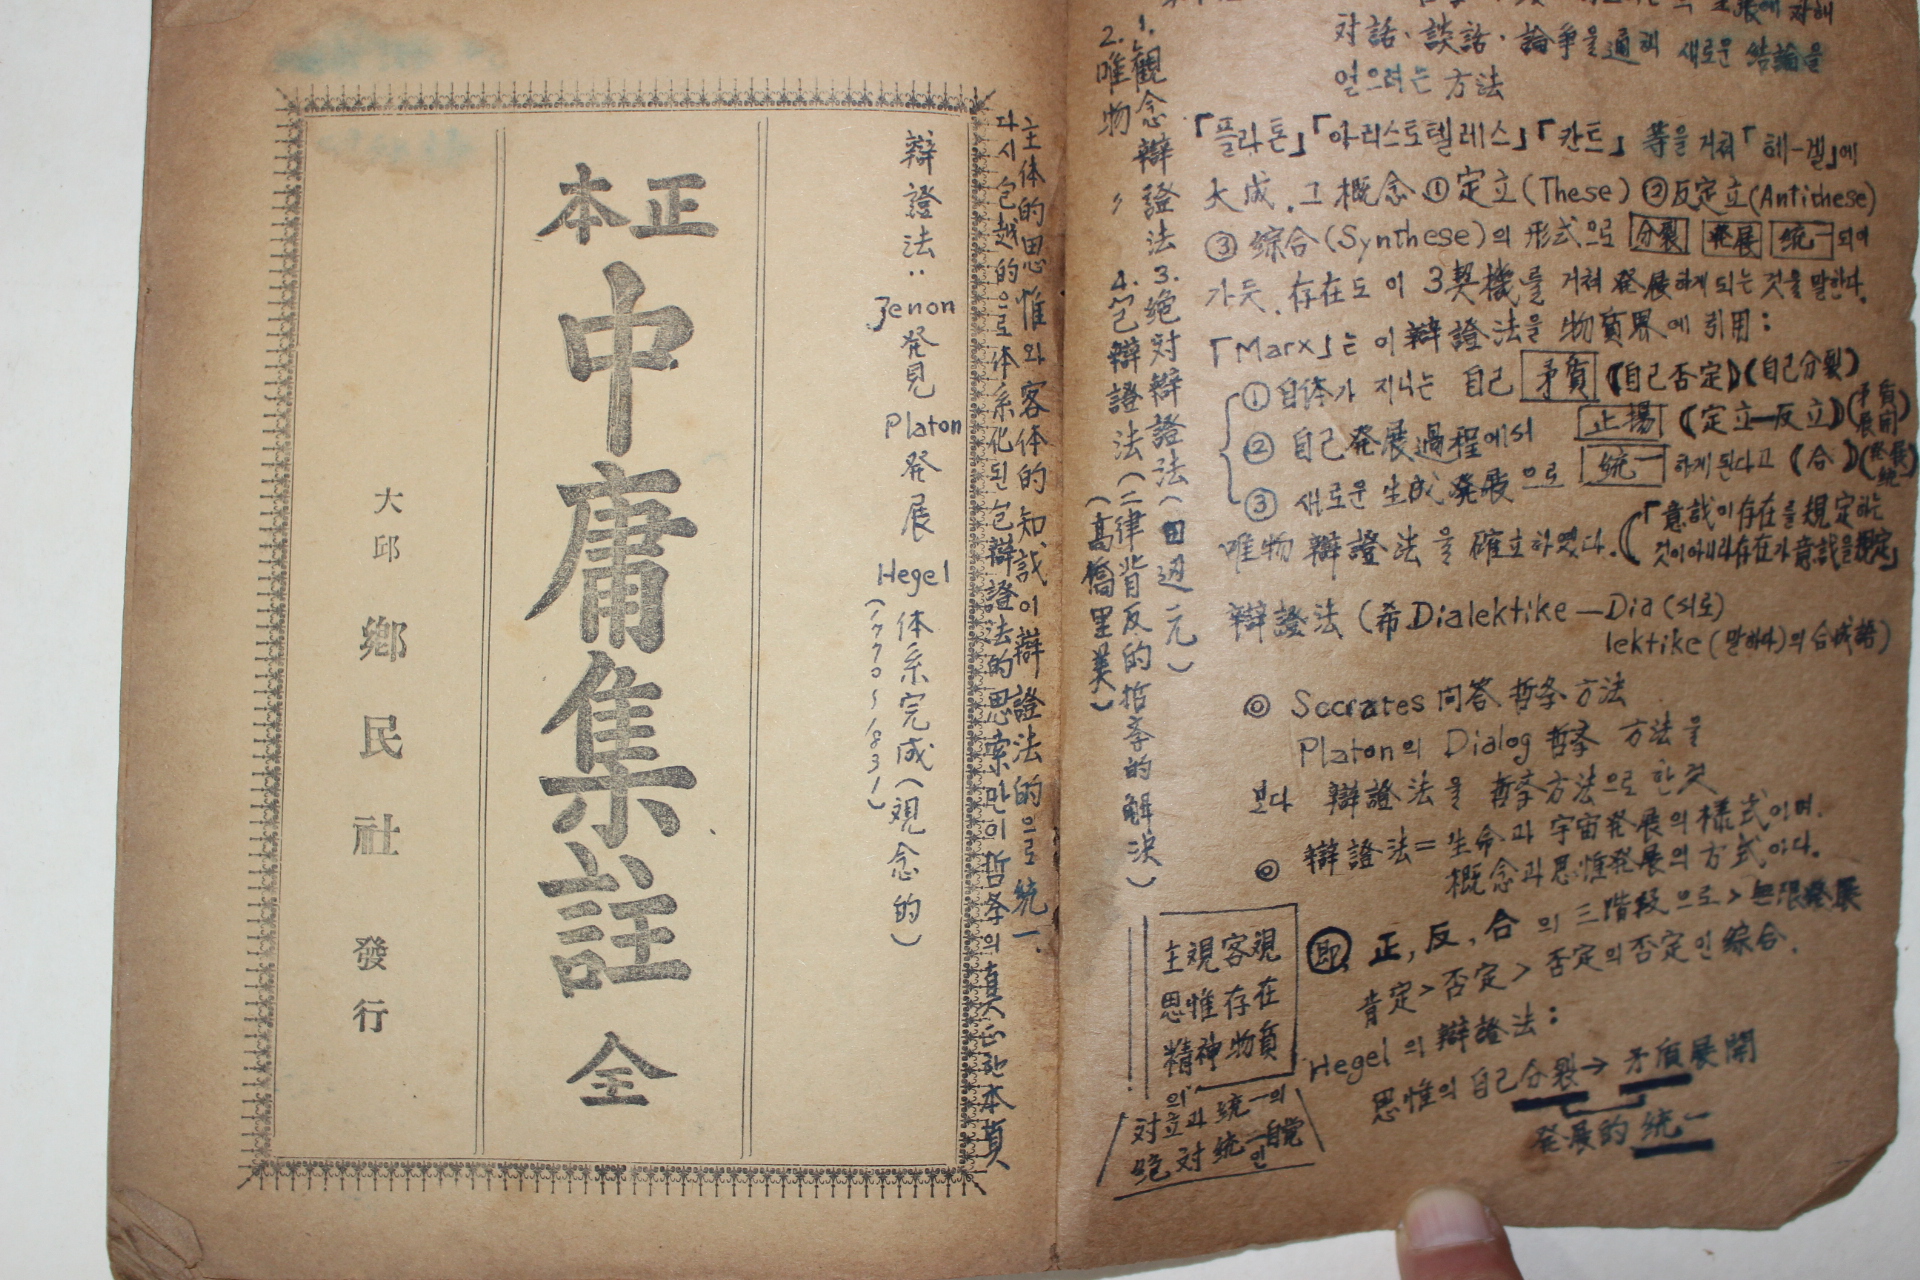 正本
中庸集註 全
大邱 鄕民社 發行
辯證法: Zenon 発見 Platon 発展 Hegel 体系完成(観念的)
(1770~1831)
主体的思惟와 客体的 知識이 辯證法的으로 統一.
다시 包越的으로 体系化된 包辯證法的思索만이 哲学의 真正한 本質
1. 観念辯證法
2. 唯物 〃
3. 絶対辯證法(田辺元)
4. 包辯證法(二律背反的哲学的解決)
(高橋里美)
対話·談話·論爭을通해 새로운 結論을
얻으려는 方法
「플라톤」「아리스토텔레스」「칸트」等을 거쳐「헤-겔」에
大成. 그 概念 ①定立(These) ②反定立(Antithese)
③ 綜合(Synthese)의 形式으로 分裂 発展 統一되어
가듯. 存在도 이 3契機를 거쳐 発展하게 되는 것을 말한다.
「Marx」는 이 辯證法을 物質界에 引用:
① 自体가 지니는 自己 矛盾 (自己否定)(自己分裂)
② 自己発展過程에서 止揚 (定立—反立)(矛盾展開)
③ 새로운 生成発展으로 統一 하게된다고 (合)(発展統一)
唯物辯證法을 確立하였다. (「意識이存在를規定하는
것이아니라存在가意識을規定」
辯證法(希Dialektike—Dia(서로)
lektike(말하다)의合成語)
◎ Socrates 問答 哲学 方法
Platon의 Dialog 哲学 方法을
본다 辯證法을 哲学方法으로 한 것
◎ 辯證法=生命과 宇宙発展의 様式이며.
概念과思惟発展의 方式이다.
卽 正, 反, 合의 三階段으로>無限発展
肯定>否定>否定의否定인 綜合.
Hegel의 辯證法:
思惟의 自己分裂→矛盾展開
発展的 統一
主観客観
思惟存在
精神物質
의
対立과 統一의
絶対統一인自覚